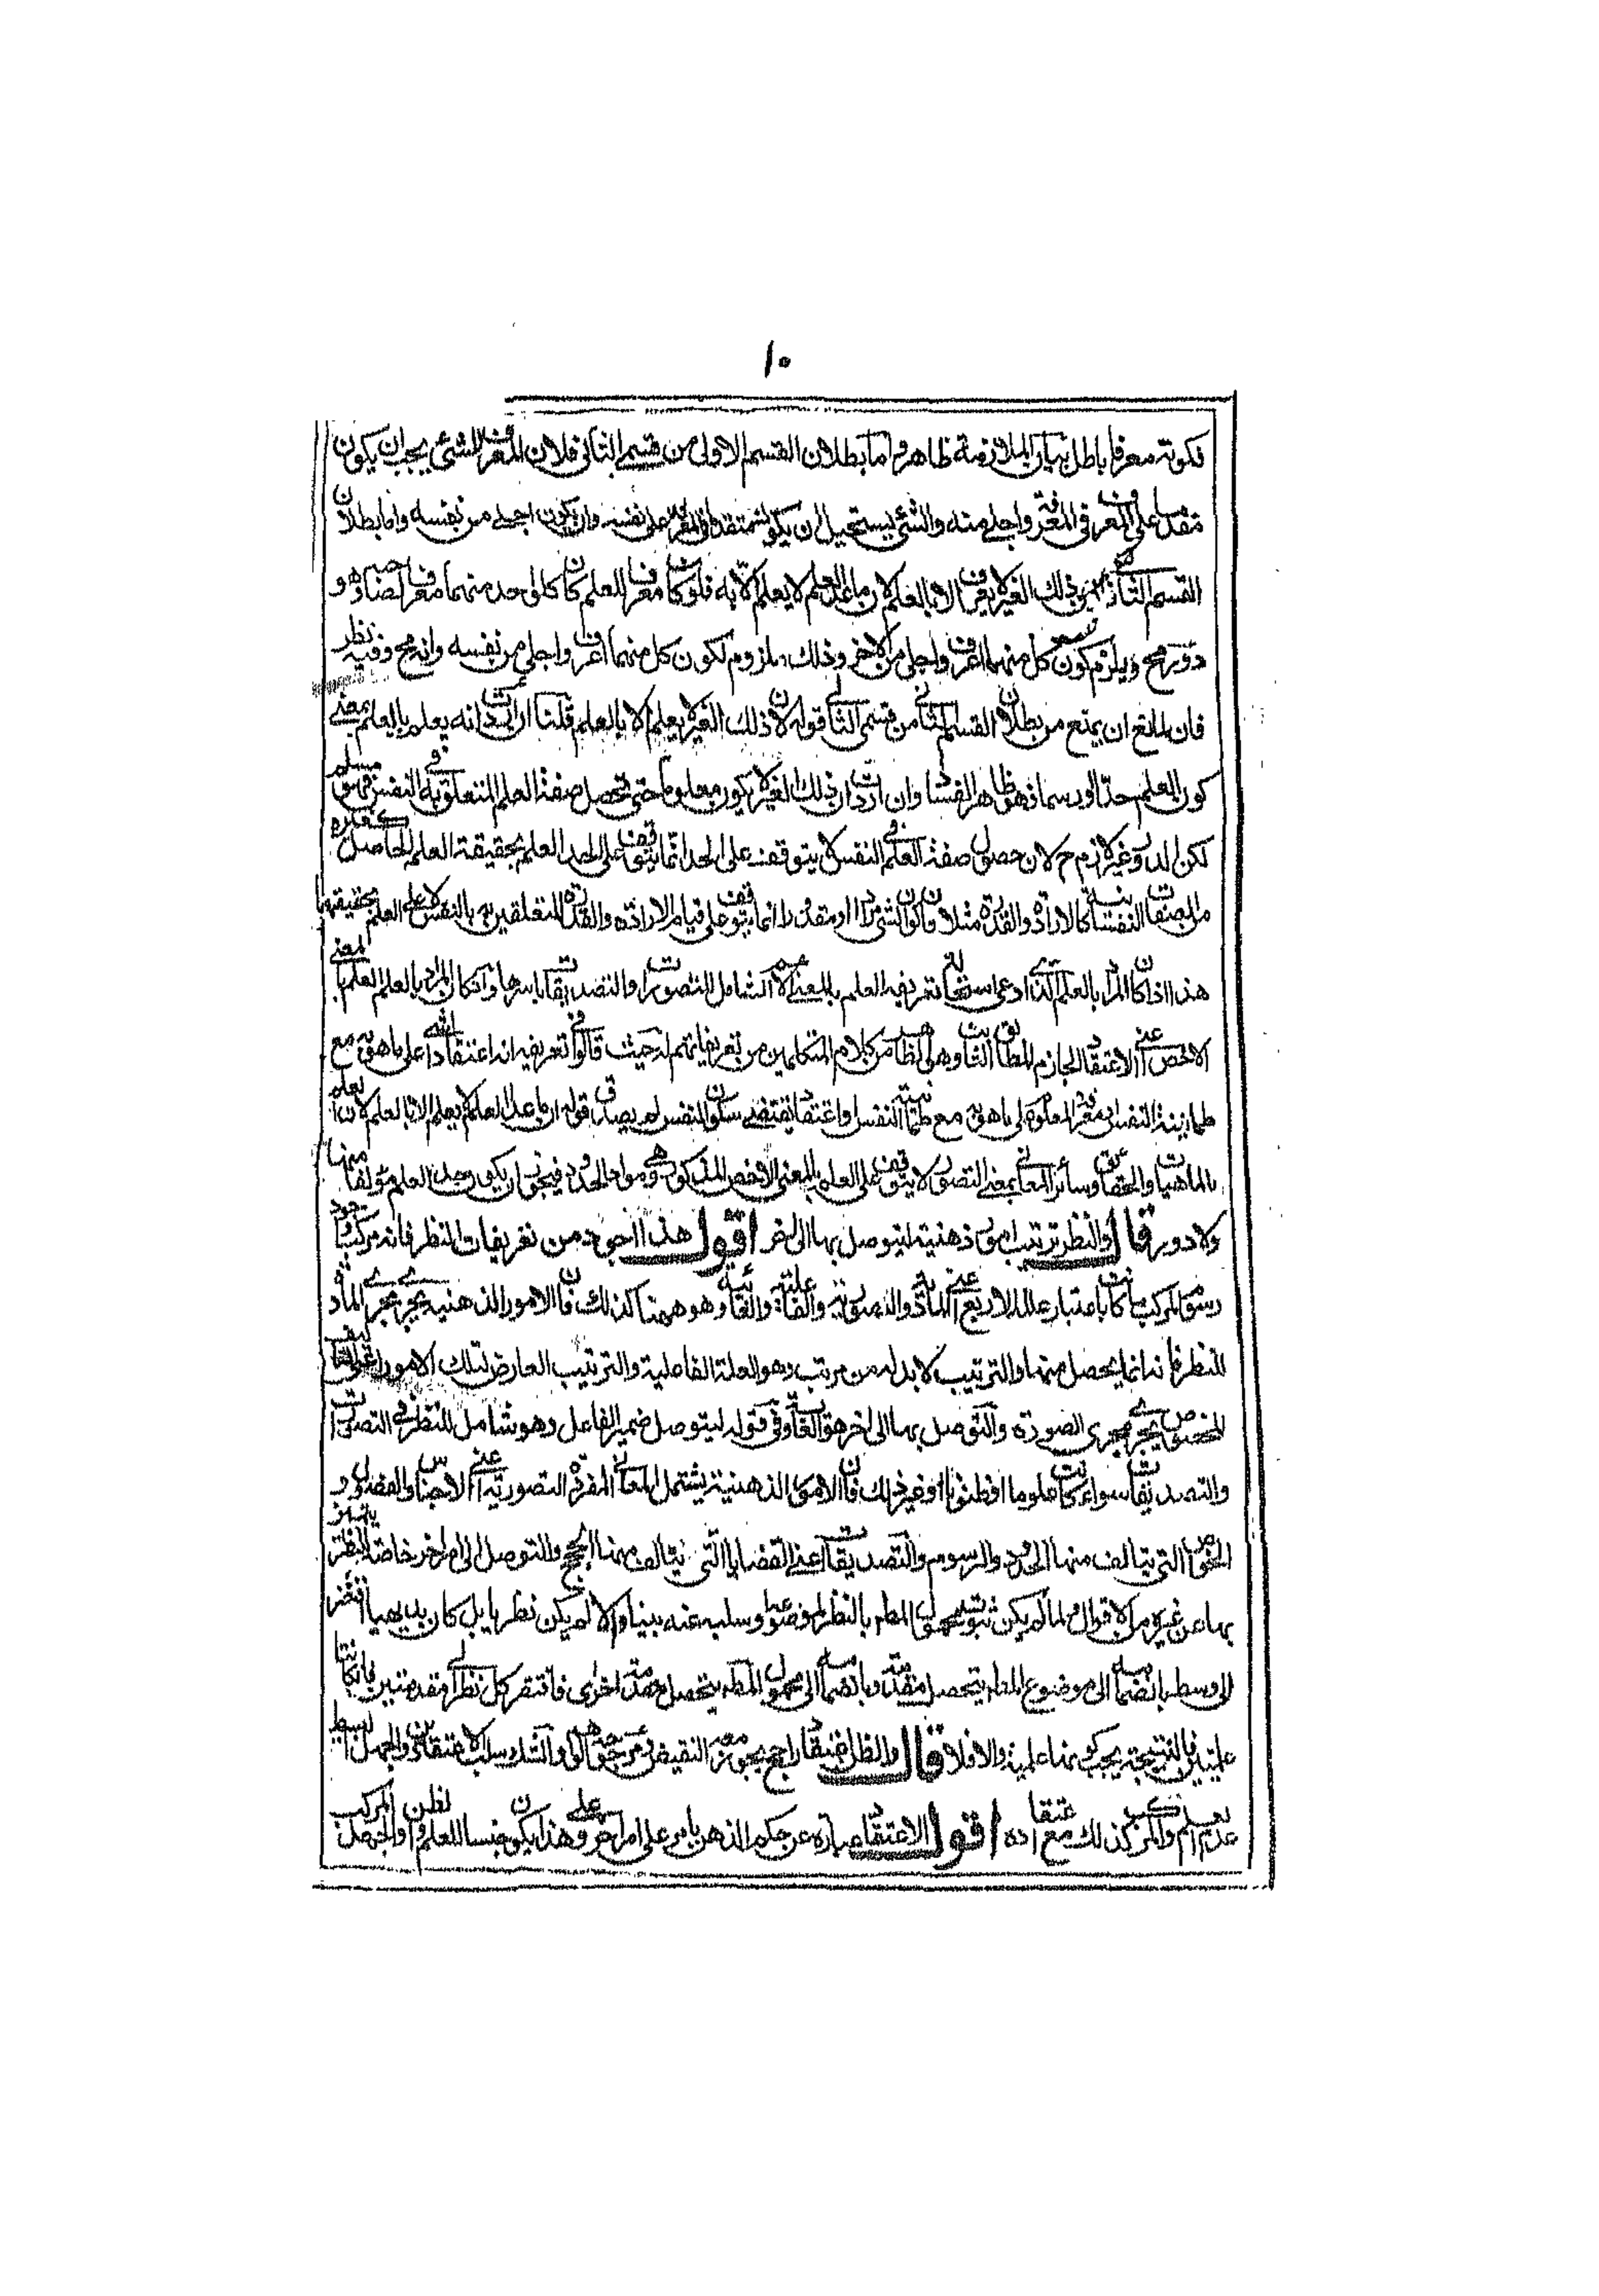 ١٠
فكونه معرفا باطل بيان الملازمة ظاهر واما بطلان القسم الاولى من قسمى الثانى فلان المعرف للشئ يجب ان يكون
مقدما على المعرف فى المعرفة واجلى منه والشئ يستحيل ان يكون متقدما فى المعرفة على نفسه وان يكون اجلى من نفسه واما بطلان
القسم الثانى فلان ذلك الغير لا يعرف الا بالعلم لان ما عدا العلم لا يعلم الا به فلو كان معرفا للعلم كان كل واحد منهما معرفا لصاحبه وهو
دور مح ويلزم كون كل منهما اعرف واجلى من الاخر وذلك ملزوم لكون كل منهما اعرف واجلى من نفسه وانه مح وفيه نظر
فان للمانع ان يمنع من بطلان القسم الثانى من قسمى الثانى قوله لان ذلك الغير لا يعلم الا بالعلم قلنا ان اردت انه يعلم بالعلم بمعنى
كون العلم حدا او رسما فهو ظاهر الفساد وان اردت ان ذلك الغير لا يكون معلوما حتى تحصل صفة العلم المتعلقة به فى النفس فهو مسلم
لكن الدور غير لازم ح لان حصول صفة العلم فى النفس لا يتوقف على الحد انما يتوقف على الحد العلم بحقيقة العلم الحاصل كغيره
من الصفات النفسانية كالارادة والقدرة مثلا فان كون الشئ مرادا او مقدورا انما يتوقف على قيام الارادة والقدرة المتعلقين به بالنفس لا على العلم بحقيقتهما
هذا اذا كان المراد بالعلم الذى ادعى استحالة تعريفه العلم بالمعنى الاعم الشامل للتصورات والتصديقات باسرها وان كان المراد بالعلم العلم بالمعنى
الاخص اعنى الاعتقاد الجازم المطابق الثابت وهو الظاهر من كلام المتكلمين من تعريفاتهم له حيث قالوا فى تعريفه انه اعتقاد الشئ على ما هو به مع
طمانينة النفس او معرفة المعلوم على ما هو به مع طمانينة النفس او اعتقاد يقتضى سكون النفس لم يصدق قوله ان ما عدا العلم لا يعلم الا بالعلم لان العلم
بالماهيات والحقائق وسائر المعانى بمعنى التصور لا يتوقف على العلم بالمعنى الاخص المذكور وهى مواد الحدود فيجوز ان يكون حد العلم مؤلفا منها
ولا دور قال والنظر ترتيب امور ذهنية ليتوصل بها الى اخر اقول هذا اجود من تعريفات النظر فانه مركب واجود
رسوم المركبات ما كان باعتبار علله الاربع اعنى المادية والصورية والفاعلية والغائية وهو ههنا كذلك فان الامور الذهنية يجرى مجرى المادة
للنظر فانه انما يحصل منها والترتيب لا بد له من مرتب وهو العلة الفاعلية والترتيب العارض لتلك الامور اعنى التاليف
المخصوص يجرى مجرى الصورة والتوصل بها الى اخر هو الغاية وفى قوله ليتوصل ضمير الفاعل وهو شامل للنظر فى التصورات
والتصديقات سواء كانت علوما او ظنونا او غير ذلك فان الامور الذهنية يشتمل المعانى المفردة التصورية اعنى الاجناس والفصول و
الخواص التى يتالف منها الحدود والرسوم والتصديقات اعنى القضايا التى يتالف منها الحجج والتوصل الى امر اخر خاصة للنظر يتميز
بها عن غيره من الاقوال ولما لم يكن ثبوت محمول المط بالنظر لموضوعه او سلبه عنه بينا والا لم يكن نظريا بل كان بديهيا افتقر
الى وسط بانضمامه الى موضوع المط يتحصل مقدمة وبانضمامه الى محمول المط يتحصل مقدمة اخرى فافتقر كل نظر الى مقدمتين فان كانتا
علميتين فالنتيجة يجب كونها علمية والا فلا قال والظن اعتقاد راجح يجوز معه النقيض والوهم مرجوحه والشك سلب الاعتقادين والجهل البسيط
عدم العلم والمركب كذلك مع اعتقاده اقول الاعتقاد عبارة عن حكم الذهن بامر على امر اخر وهذا يكون جنسا للعلم والظن والجهل المركب